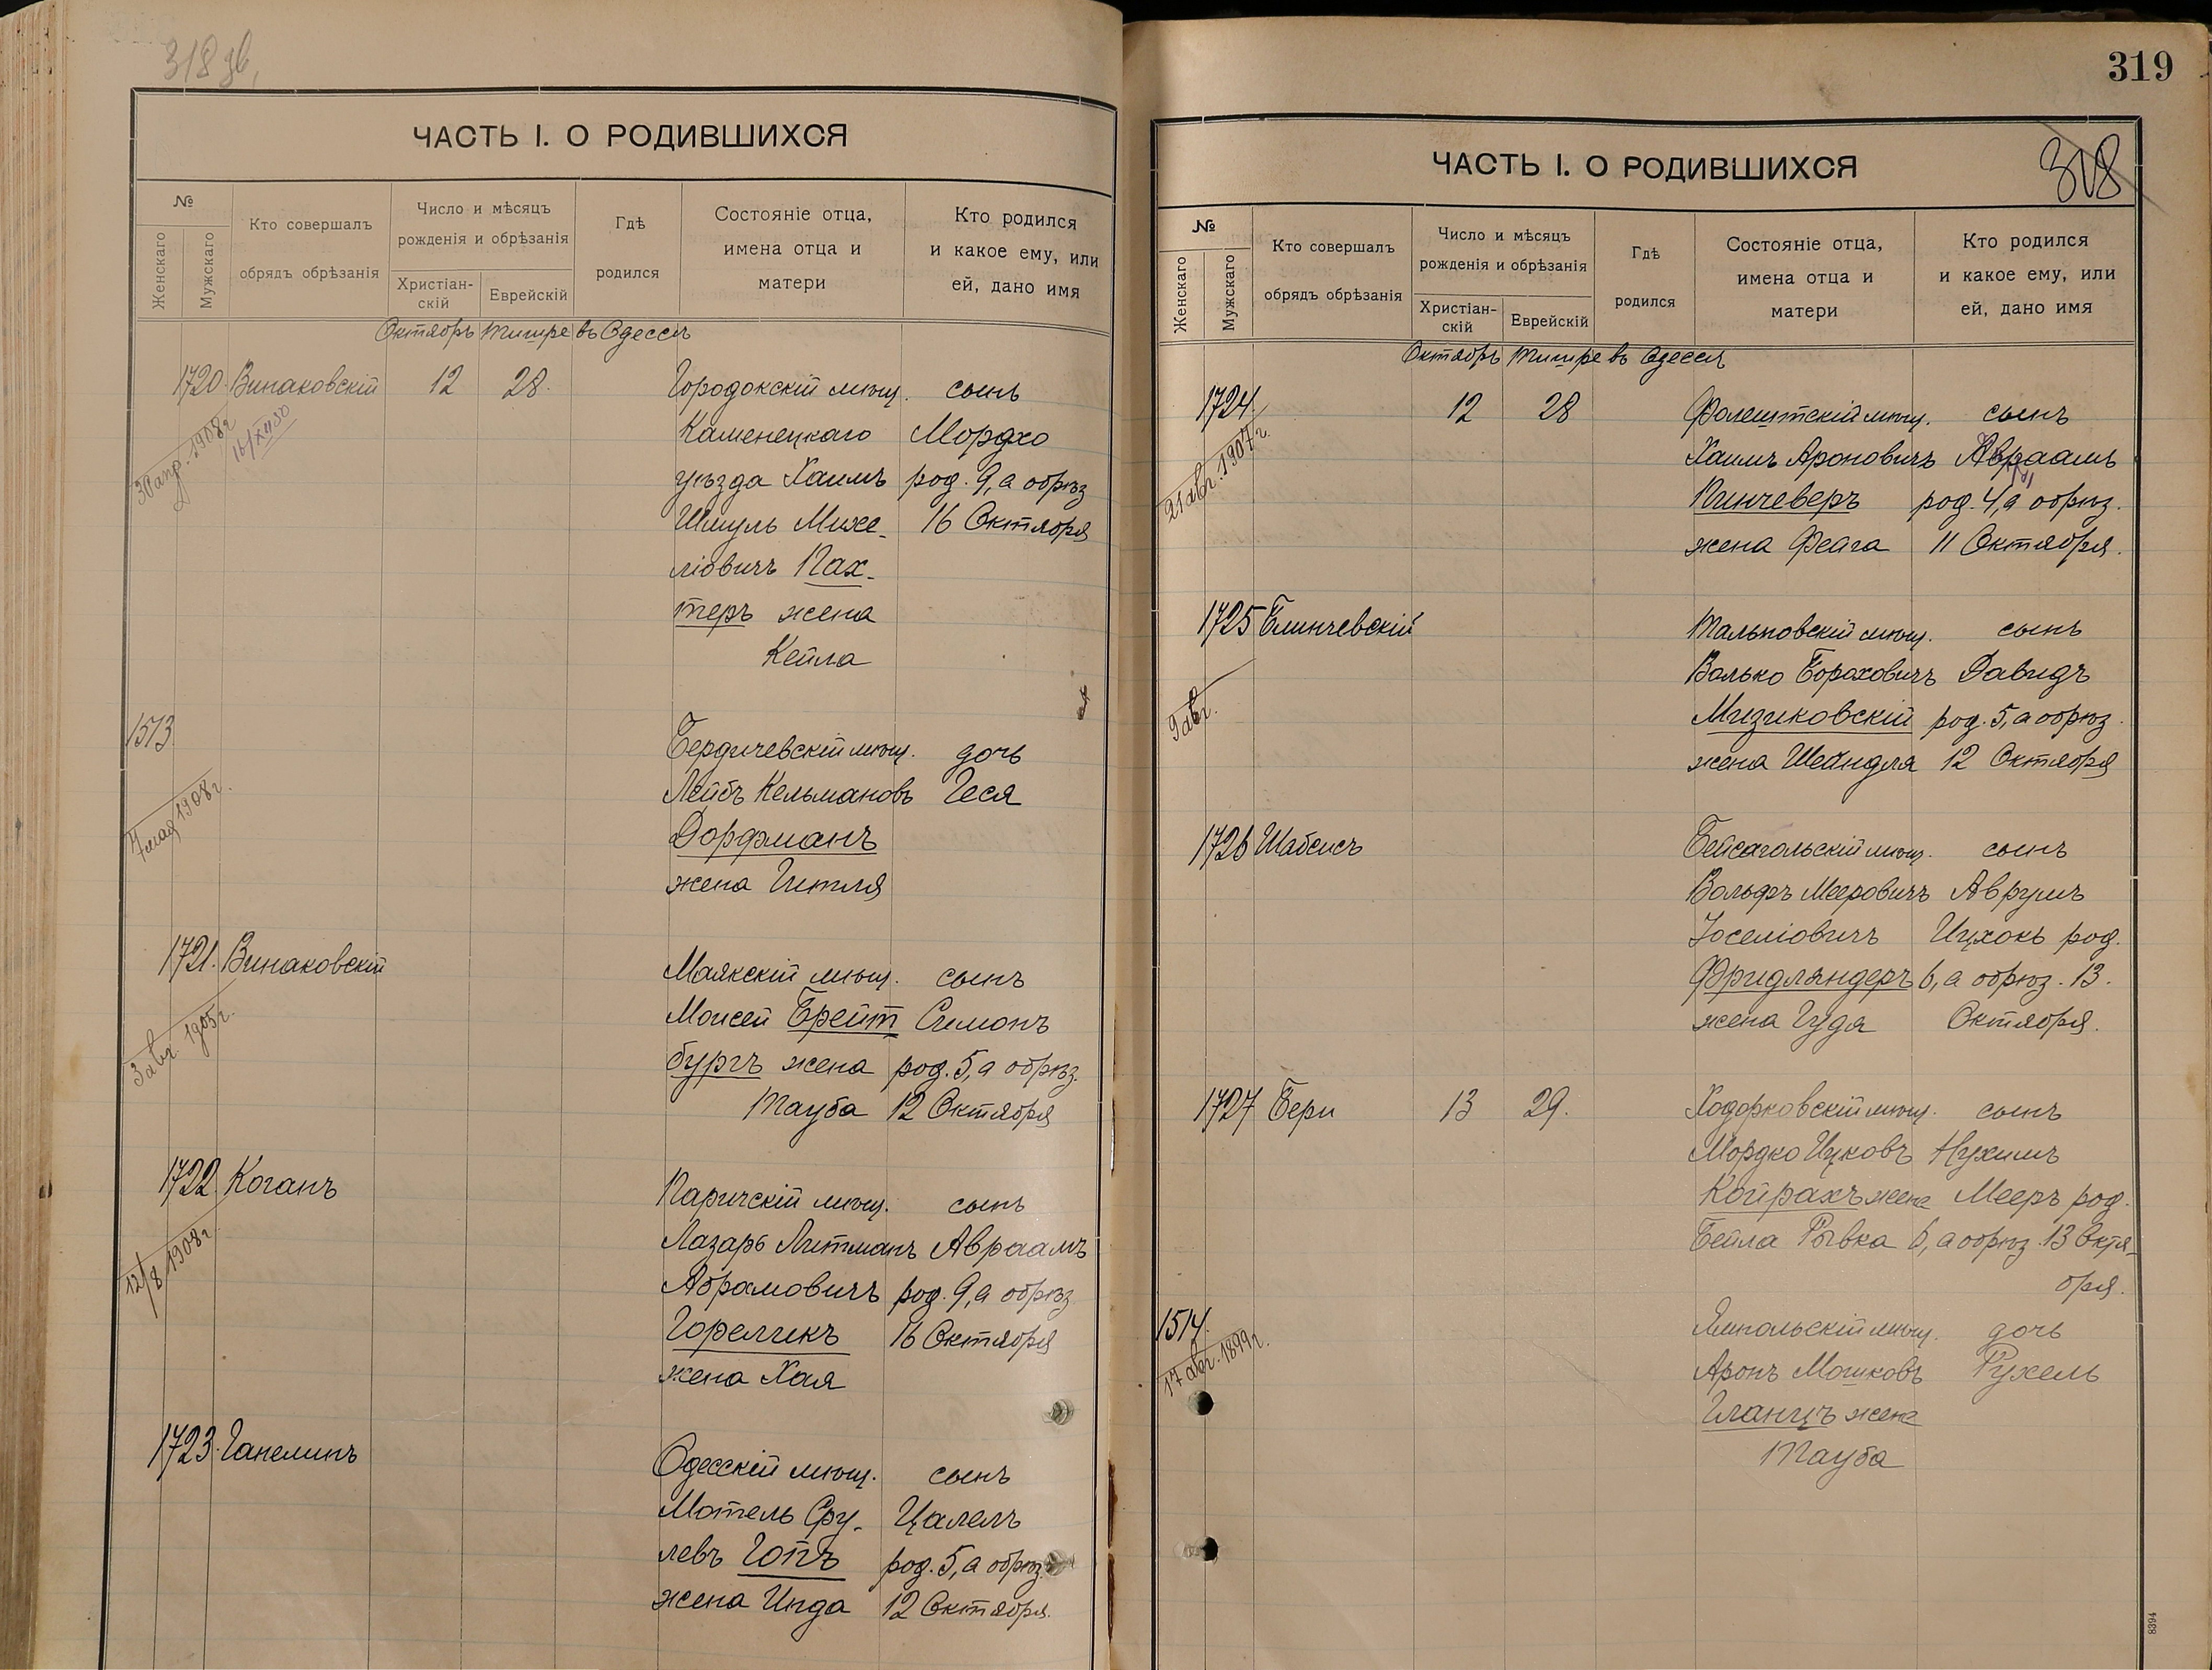 318 об.
ЧАСТЬ I. О РОДИВШИХСЯ
№
Женскаго
Мужскаго
Кто совершалъ
обрядъ обрѣзанія
Число и мѣсяцъ
рожденія и обрѣзанія
Христіан-
скій
Еврейскій
Гдѣ
родился
Состояніе отца,
имена отца и
матери
Кто родился
и какое ему, или
ей, дано имя
Октябрь Тишре въ Одессѣ
1720. Винаковскій 12 28. Городокскій мѣщ. сынъ
Каменецкаго Мордхо
уѣзда Хаимъ род. 9, а обрѣз
Шмуль Михе- 16 Октября
ліовичъ Пах-
теръ жена
Кейла
30 апр. 1908 г
1573. Бердичевскій мѣщ. дочь
Лейбъ Кельмановъ Геся
Дорфманъ
жена Гитля
7 мая 1908 г.
1721. Винаковскій Маякскій мѣщ. сынъ
Моисей Брейт Симонъ
бургъ жена род. 5, а обрѣз.
Тауба 12 Октября
3 авг. 1905 г.
1722. Коганъ Паричскій мѣщ. сынъ
Лазарь Литманъ Авраамъ
Абрамовичъ род. 9, а обрѣз
Гореликъ 16 Октября
жена Хая
12/8 1908 г
1723. Ганелинъ Одесскій мѣщ. сынъ
Мотель Сру- Цалелъ
левъ Гопъ род. 5, а обрѣз.
жена Инда 12 Октября.
319
318
ЧАСТЬ I. О РОДИВШИХСЯ
№
Женскаго
Мужскаго
Кто совершалъ
обрядъ обрѣзанія
Число и мѣсяцъ
рожденія и обрѣзанія
Христіан-
скій
Еврейскій
Гдѣ
родился
Состояніе отца,
имена отца и
матери
Кто родился
и какое ему, или
ей, дано имя
Октябрь Тишре въ Одессѣ
1724. 12 28 Фалештскій мѣщ. сынъ
Хаимъ Ароновичъ Авраамъ
Пинчеверъ род. 4, а обрѣз.
жена Фейга 11 Октября.
21 авг. 1907 г.
1725 Блинчевскій Тальновскій мѣщ. сынъ
Волько Бороховичъ Давидъ
Мизиковскій род. 5, а обрѣз.
жена Шейндля 12 Октября
9 авг.
1726 Шабсисъ Бейсагольскій мѣщ. сынъ
Вольфъ Мееровичъ Аврумъ
Іоселіовичъ Ицхокъ род.
Фридляндеръ 6, а обрѣз. 13.
жена Гудя Октября.
1727 Бери 13 29. Ходорковскій мѣщ. сынъ
Мордко Ицковъ Нухимъ
Койрахъ жена Мееръ род.
Бейла Рывка 6, а обрѣз. 13 Октя-
бря.
1514. Ямпольскій мѣщ. дочь
Аронъ Мошковъ Рухель
Гланцъ жена
Тауба
17 авг. 1899 г.
8394